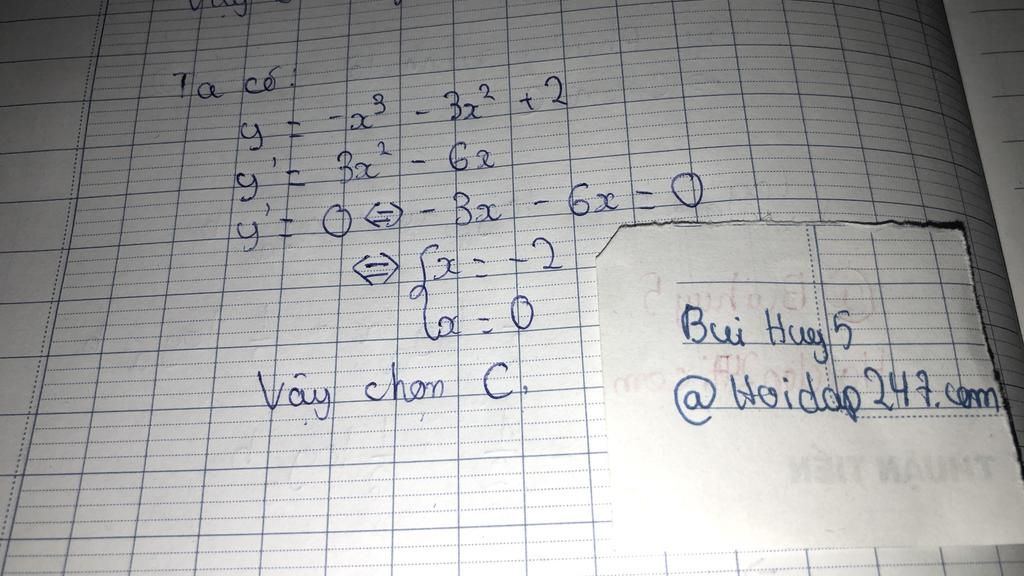 Ta có:
y = -x³ - 3x² + 2
y' = 3x² - 6x
y' = 0 ⇔ - 3x - 6x = 0
⇔ { x = -2
x = 0
Vậy chọn C.
Bui Huy 5
@Hoidap247.com
THUẬN TIẾN